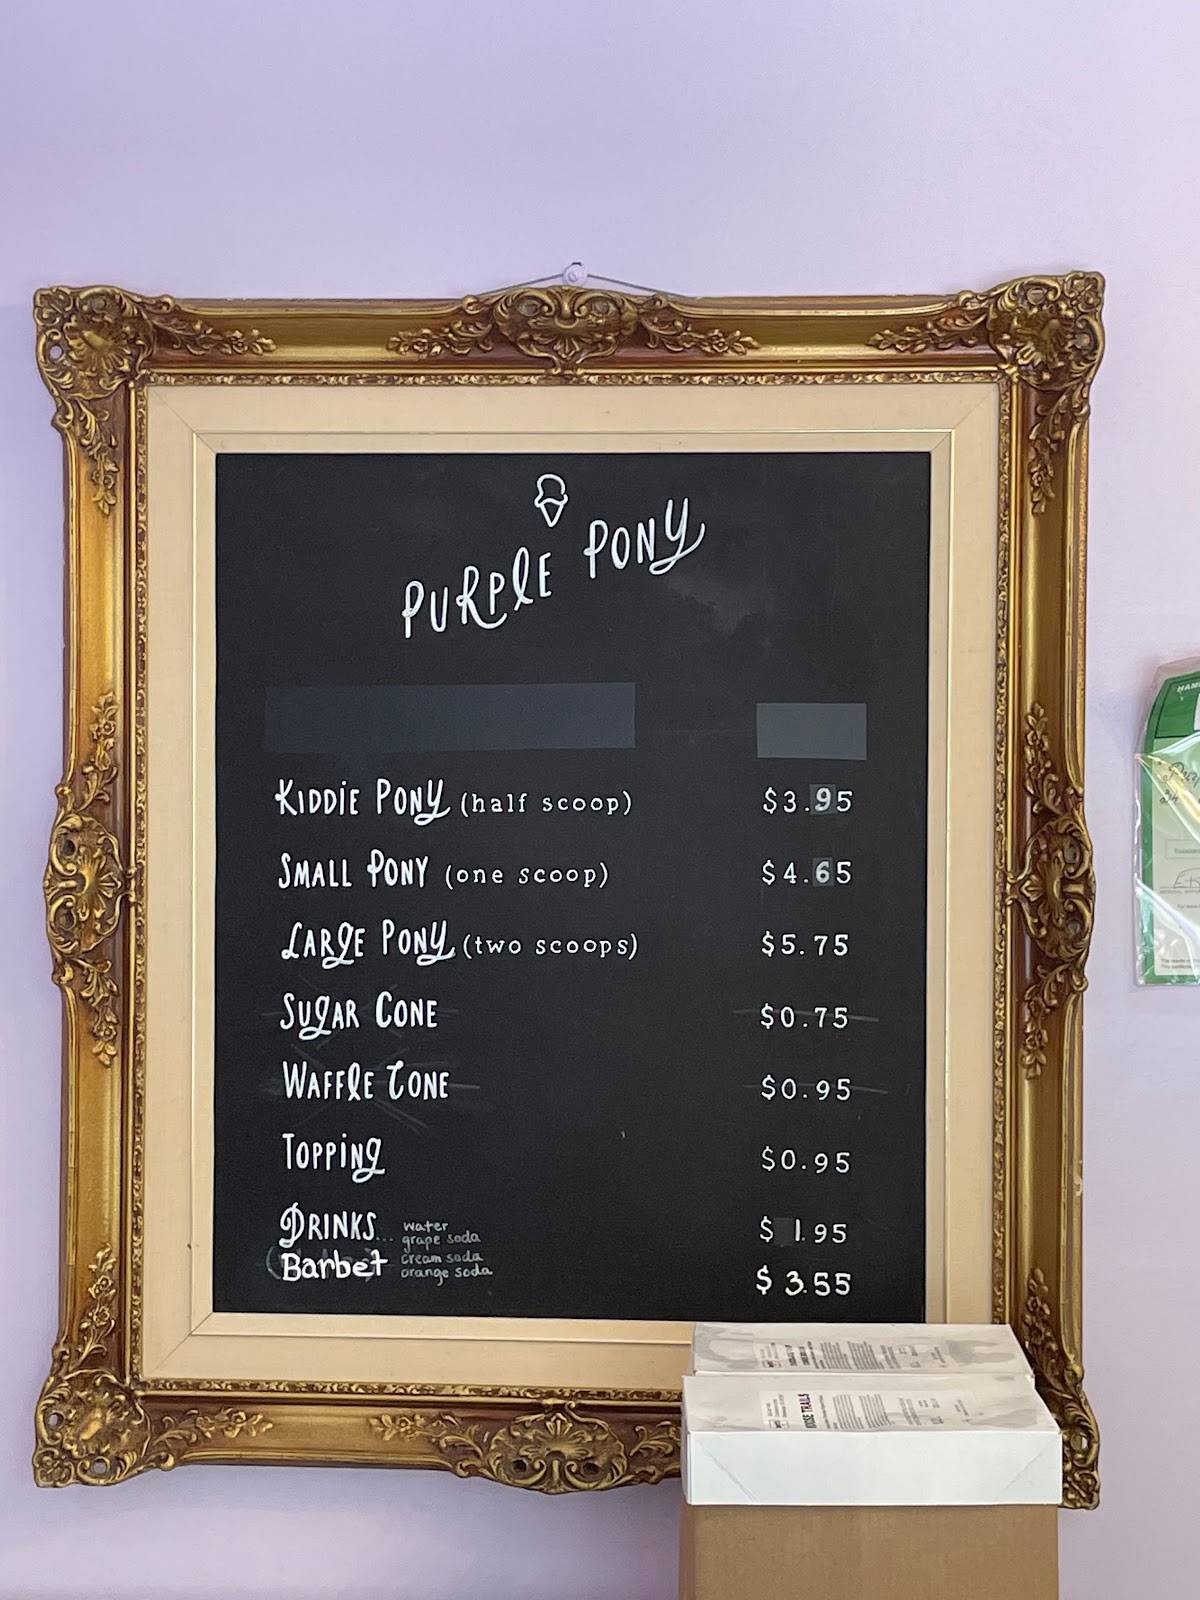 PURPLE PONY
KIDDIE PONY (half scoop) $3.95
SMALL PONY (one scoop) $4.65
LARGE PONY (two scoops) $5.75
SUGAR CONE $0.75
WAFFLE CONE $0.95
TOPPING $0.95
DRINKS... water $1.95
grape soda
Barbet cream soda $3.55
orange soda